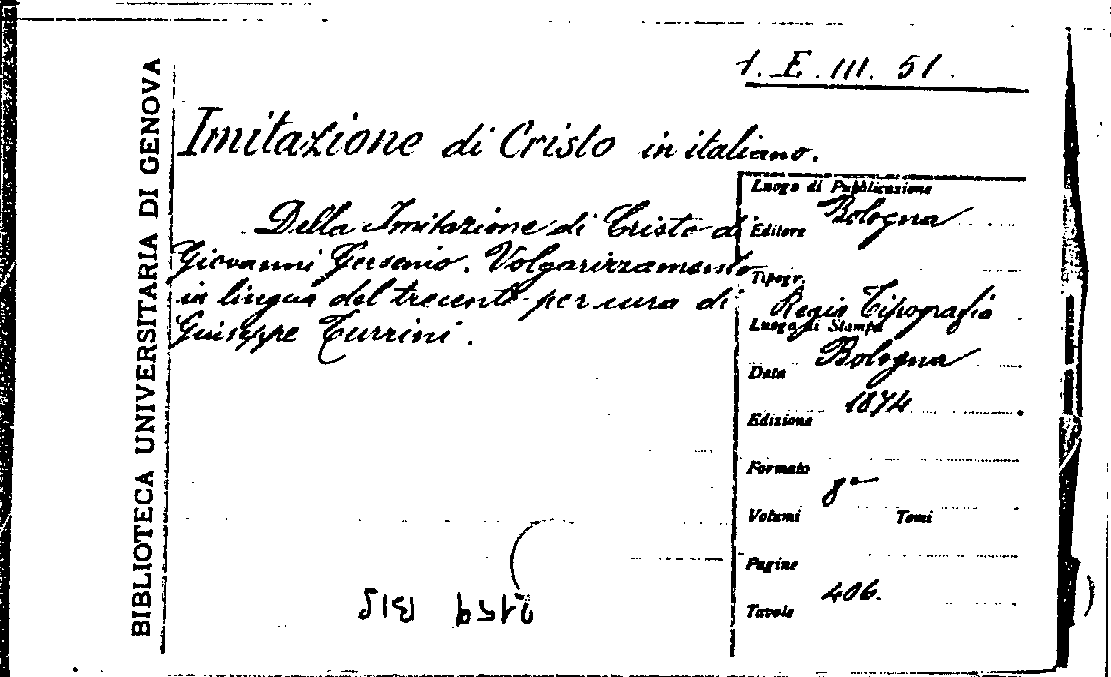 BIBLIOTECA UNIVERSITARIA DI GENOVA
1. E. III. 51.
Imitazione di Cristo in italiano.
Della Imitazione di Cristo di
Giovanni Gersenio. Volgarizzamento
in lingua del trecento per cura di
Giuseppe Turrini.
Luogo di Pubblicazione
Bologna
Editore
Tipogr.
Regia Tipografia
Luogo di Stampa
Bologna
Data
1874
Edizione
Formato
8°
Volumi Tomi
Pagine
406.
Tavole